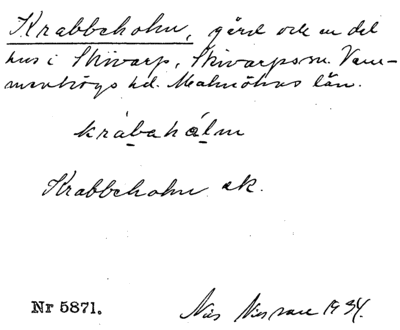 Krabbeholm, gård och en del
hus i Skivarp, Skivarps sn. Vem-
menhögs hd. Malmöhus län.
krábahálm
Krabbeholm ek.
Nr 5871.
Nils Nilsson 1934.